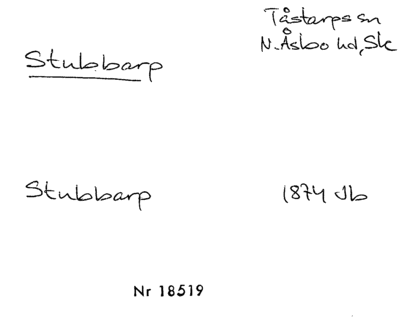 Tåstarps sn
N. Åsbo hd, Sk
Stubbarp
Stubbarp 1874 Jb
Nr 18519